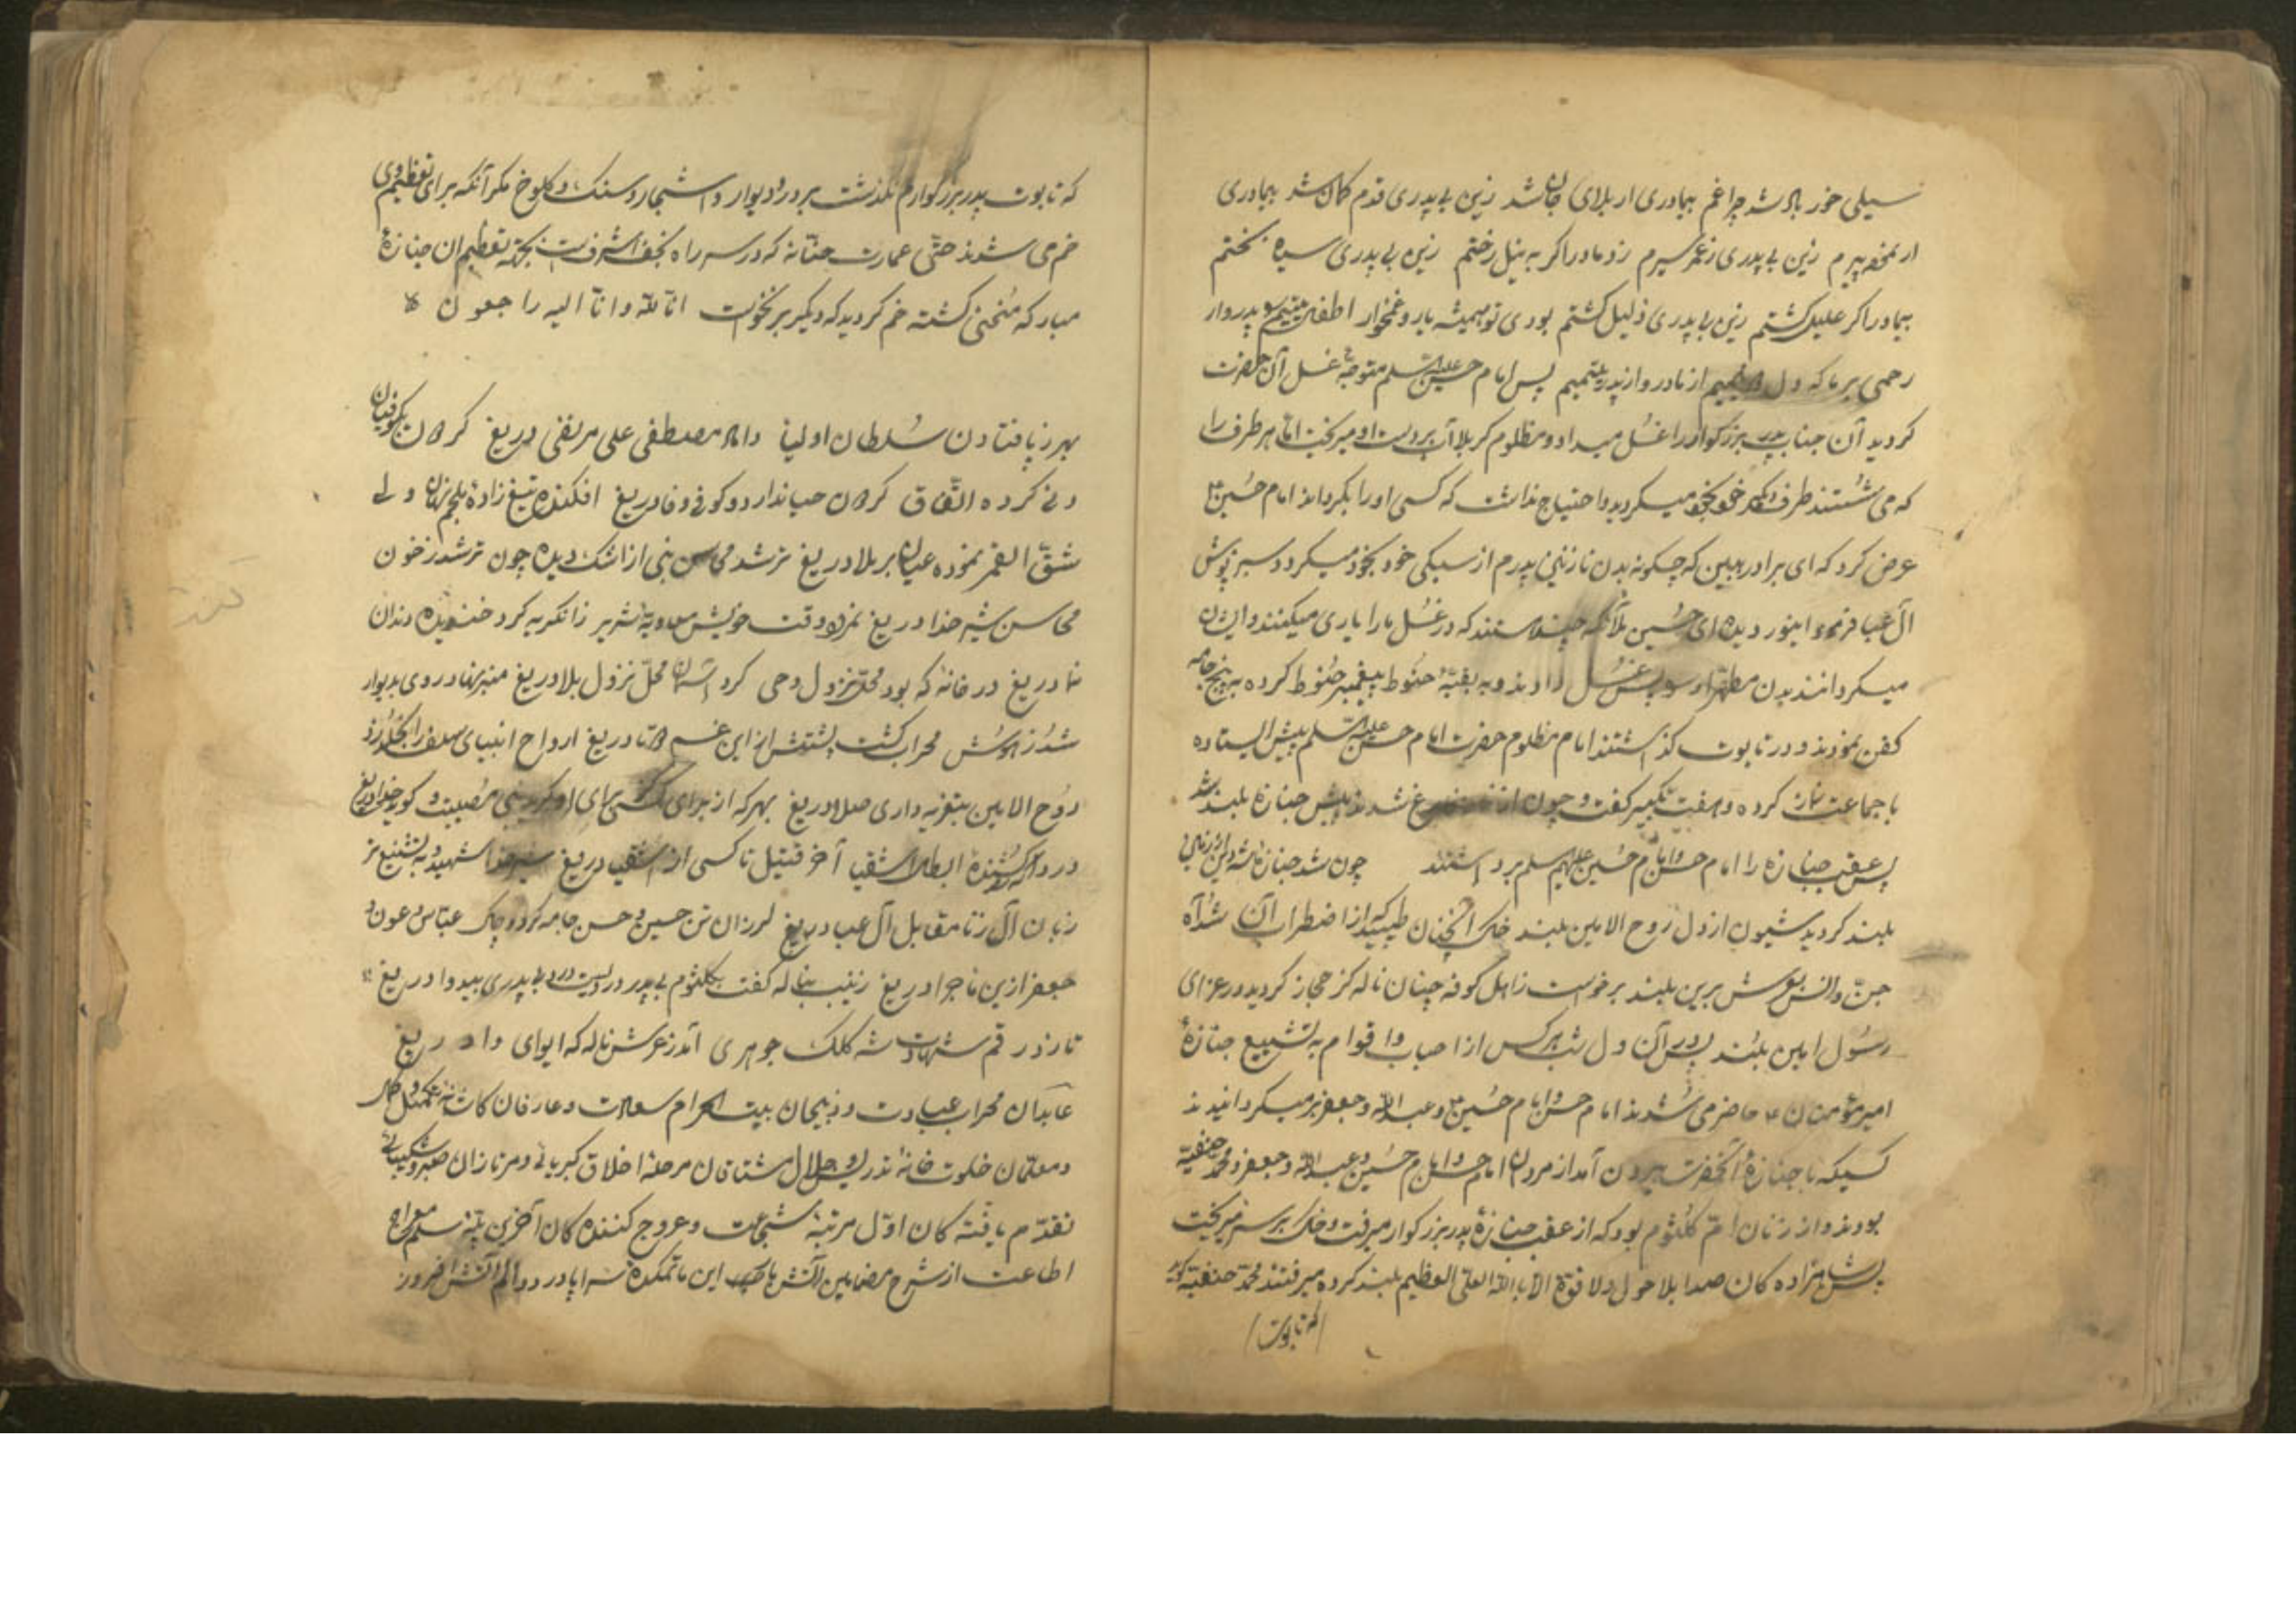 سیلی خور شد چراغم بیمادری از بلای جان شد زین بی پدری قدم کمان شد بیمادری
از پیرم زین بی پدری ز عمر سیرم زد مادر اگر به نیل رختم زین بی پدری سیاه بختم
بیمادر اگر علیل گشتم زین بی پدری ذلیل گشتم بودی تو همیشه یار و غمخوار اطفال یتیم
رحمی بر ما که دل از مادر و از پدر یتیمیم پس امام حسین علیه السلم متوجه غسل آن حضرت
کردید آن جناب پدر بزرکوار را غسل میداد و مظلوم کربلا آب بردست او میریخت امّا هر طرف را
که می شستند طرف دیگر خود بخود میکردید و احتیاج نداشت که کسی او را بگرداند امام حسین ع
عرض کرد که ای برادر ببین که چگونه بدن نازنین پدرم از سبکی خود بخود میکردد سبز پوش
آل عبا فرمود اینور دیده ای حسین ملائکه هستند که در غسل ما را یاری میکنند و ایشان
میکردانند بدن مطهر او پس غسل دادند و به بقیّهٔ حنوط پیغمبر حنوط کرده به پنج جامه
کفن نمودند و در تابوت کذاشتند امام مظلوم حضرت امام حسن علیه السلم پیش ایستاده
با جماعت نماز کرده و هفت تکبیر گفت و چون از نماز فارغ شدند پیش جنازه بلند شد
پس عقب جنازه را امام حسن و امام حسین علیهم سلم برداشتند چون شد جنازهٔ شه دین
بلند کردید شیون از دل روح الامین بلند خاک آنچنان طپید از اضطراب آن شد آه
جنّ و انس بعرش برین بلند برخواست ز اهل کوفه چنان ناله کز حجاز کردید در عزای
رسول امین بلند پس در آن دل شب هر کس از احباب و اقوام به تشییع جنازهٔ
امیر مؤمنان ع حاضر می شدند امام حسن و امام حسین ع و عبد الله و جعفر بر میکردانیدند
کسیکه با جنازهٔ آنحضرت بیرون آمد از مردان امام حسن و امام حسین و عبد الله و جعفر و محمد حنفیه
بودند و از زنان امّ کلثوم بود که از عقب جنازهٔ پدر بزرکوار میرفت و خاک بر سر میریخت
پس شاهزاده کان صدا بلا حول ولا قوة الا بالله العلی العظیم بلند کرده میرفتند محمّد حنفیه کوید
که تابوت
که تابوت پدر بزرکوارم نکذشت بر در و دیوار و اشجار و سنک و کلوخ مکر آنکه برای تعظیم وی
خم می شدند حتّی عمارت حنّانه که در سر راه نجف اشرفست بجهة تعظیم آن جنازهٔ
مبارکه منحنی کشته خم کردید که دیکر بر نخواست انّا لله و انّا الیه راجعون
بهر ز پا فتادن سلطان اولیا داماد مصطفی علی مرتضی دریغ کردند کوفیان
کرده اتّفاق حیا ندارد و کوفی وفا دریغ افکنده تیغ زادهٔ ملجم
شقّ القمر نموده عیان بر ملا دریغ تر شد محاسن نبی از اشک دیده چون تر شد ز خون
محاسن شیر خدا دریغ وقت خویش معاویهٔ شریر زانکریه کرد خندیدن دندان
نما دریغ در خانهٔ که بود محلّ نزول وحی کرد آسمان محلّ نزول بلا دریغ منبر نهاد روی بدیوار
شد ز هوش محراب کشت پشتش از این غم دو تا دریغ ارواح انبیای سلف را بخلد زد
روح الامین بتعزیه داری صلا دریغ بهر که از برای کسی برای او مصیبت و کوید خدا دریغ
درد آ که کشندهٔ ابطال اشقیا آخر قتیل ناکسی از اشقیا دریغ شیر خدا شهید و به تشنیع تر
زبان آل زنا مقابل آل عبا دریغ لرزان تن حسین و حسن جامه کرد چاک عبّاس و عون و
جعفر ازین ماجرا دریغ زینب بناله گفت بکلثوم بی پدر دردیست درد بی پدری بیدوا دریغ
تا زد رقم شهادت شه کلک جوهری آمد ز عرش ناله که ایوای وا دریغ
عابدان محراب عبادت و ذبیحان بیت الحرام سعادت و عارفان
و معلّمان خلوت خانهٔ تدریس جلال مشتاقان مرحلهٔ اخلاق کبریائی و سرتازان صبر و شکیبائی
تقدّم یافته کان اوّل مرتبهٔ شجاعت و عروج کننده کان آخرین پلّهٔ سلّم معراج
اطاعت از شرح مضامین آتش این ماتمکدهٔ سراپا درد و الم آتش افروز